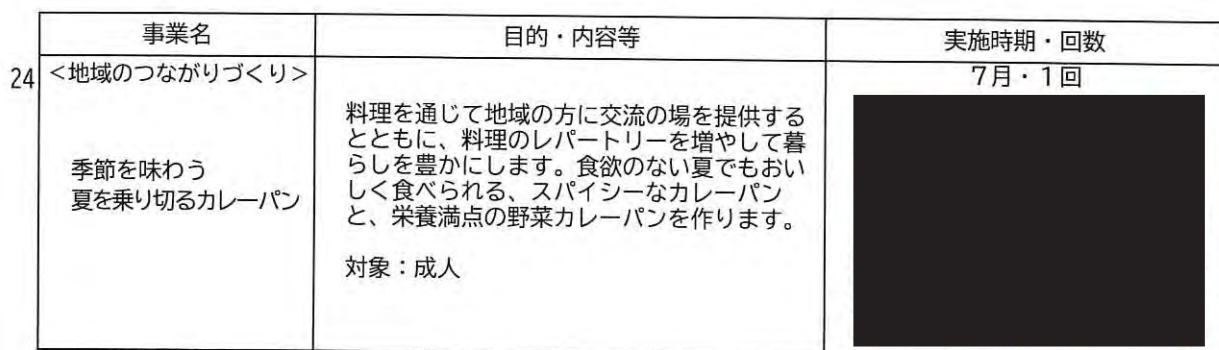 事業名
目的・内容等
実施時期・回数
24
<地域のつながりづくり>
季節を味わう
夏を乗り切るカレーパン
料理を通じて地域の方に交流の場を提供する
とともに、料理のレパートリーを増やして暮
らしを豊かにします。食欲のない夏でもおい
しく食べられる、スパイシーなカレーパン
と、栄養満点の野菜カレーパンを作ります。
対象：成人
7月・1回